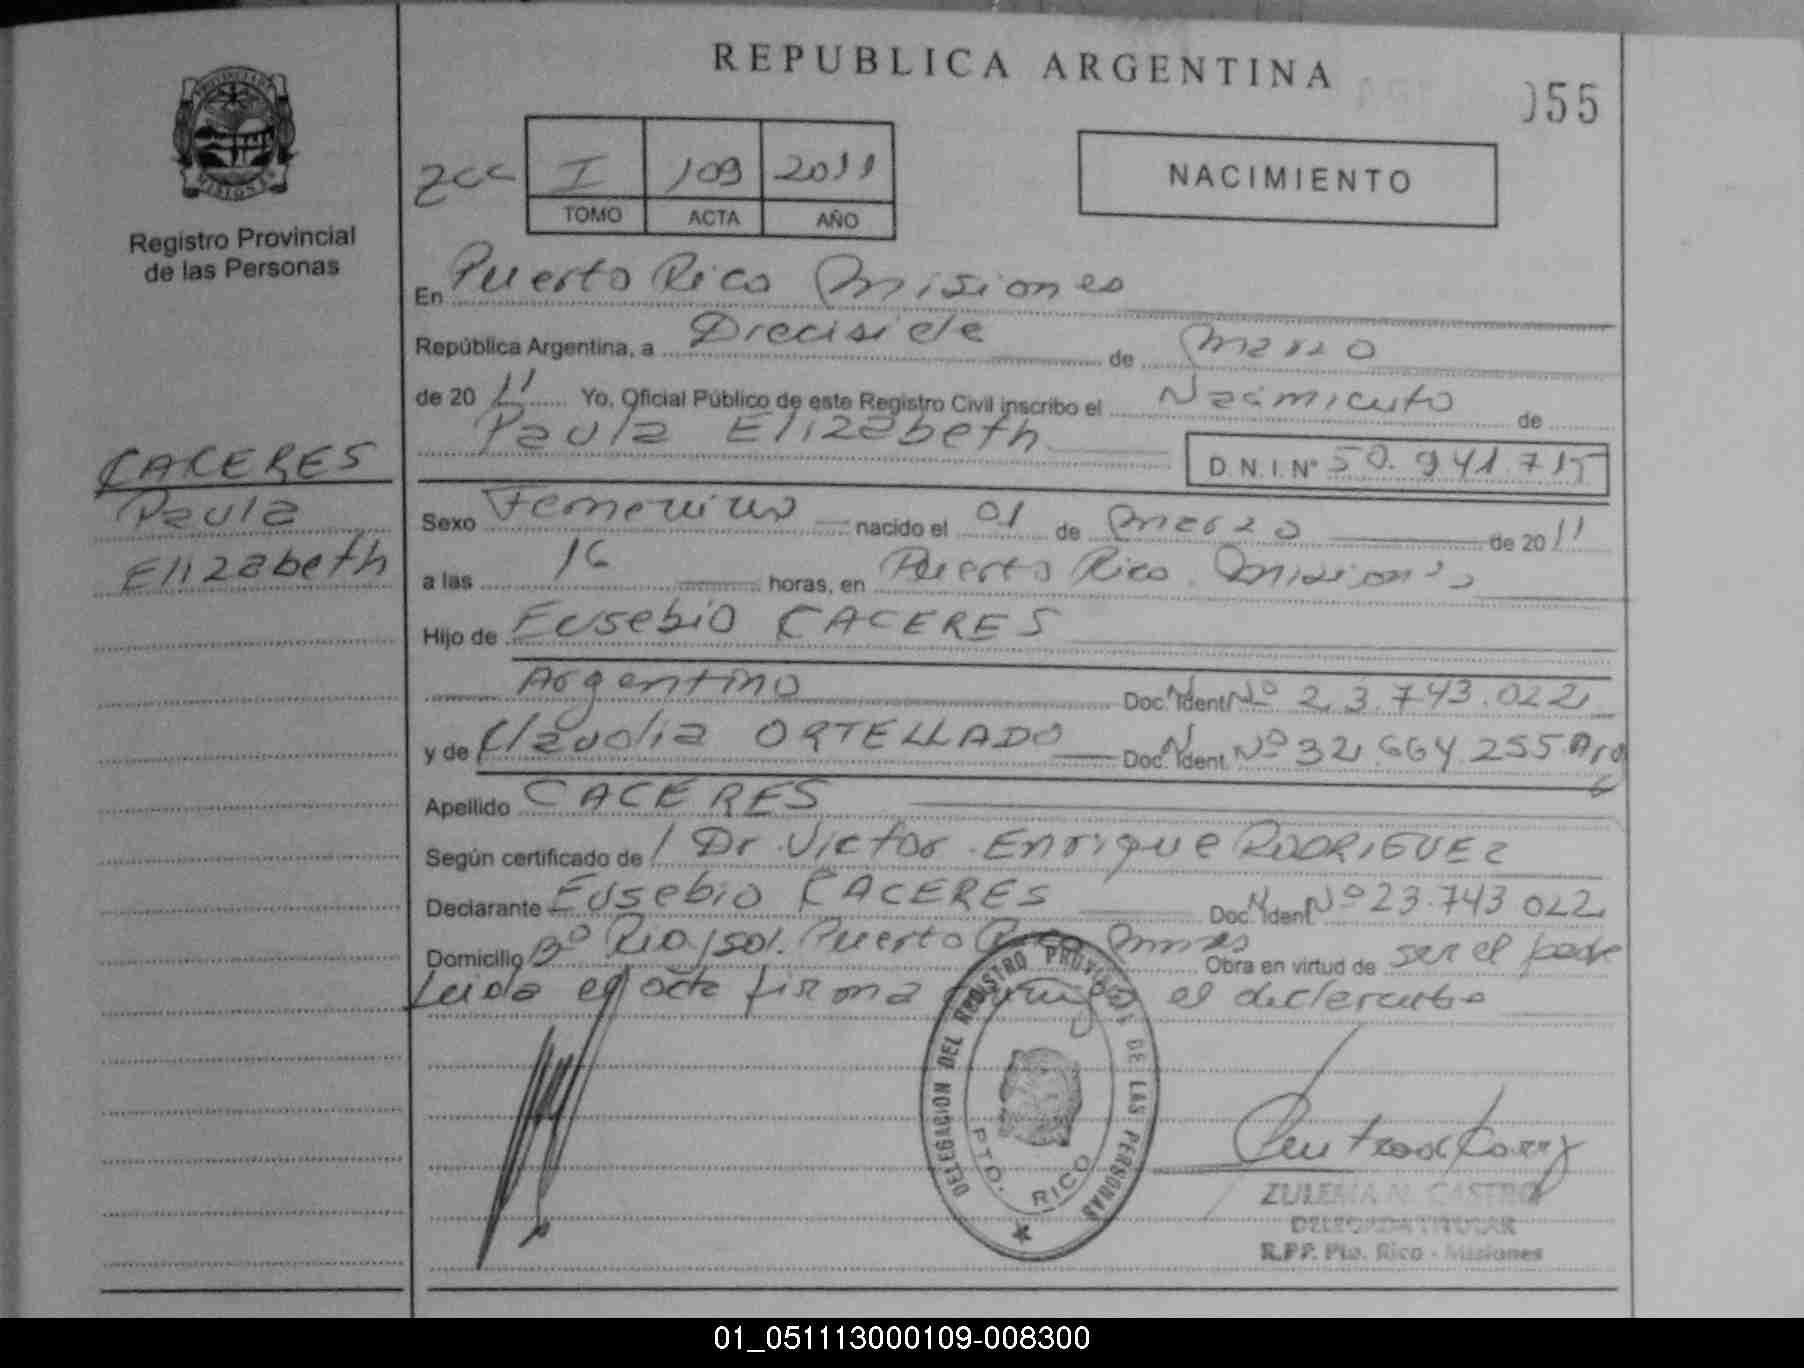 REPUBLICA ARGENTINA
055
PROVINCIA DE MISIONES
Registro Provincial
de las Personas
I 109 2011
TOMO ACTA AÑO
NACIMIENTO
En Puerto Rico Misiones
República Argentina, a Diecisiete de Marzo
de 20 11 Yo, Oficial Público de este Registro Civil inscribo el Nacimiento de
Paula Elizabeth
D.N.I.Nº 50.941.715
CACERES
Paula
Elizabeth
Sexo Femenino nacido el 01 de Marzo de 20 11
a las 16 horas, en Puerto Rico Misiones
Hijo de Eusebio CACERES
Argentino Doc. Ident Nº 23.743.022
y de Claudia ORTELLADO Doc. Ident. Nº 32.664.255 Arg
Apellido CACERES
Según certificado de Dr. Victor Enrique RODRIGUEZ
Declarante Eusebio CACERES Doc. Ident Nº 23.743 022
Domicilio Bº Puerto Rico Mnes Obra en virtud de ser el padre
Leida el acta firma conmigo el declarante
DELEGACION DEL REGISTRO PROVINCIAL DE LAS PERSONAS
PTO. RICO
ZULEMA N. CASTRO
DELEGADA TITULAR
R.P.P. Pto. Rico - Misiones
01_051113000109-008300